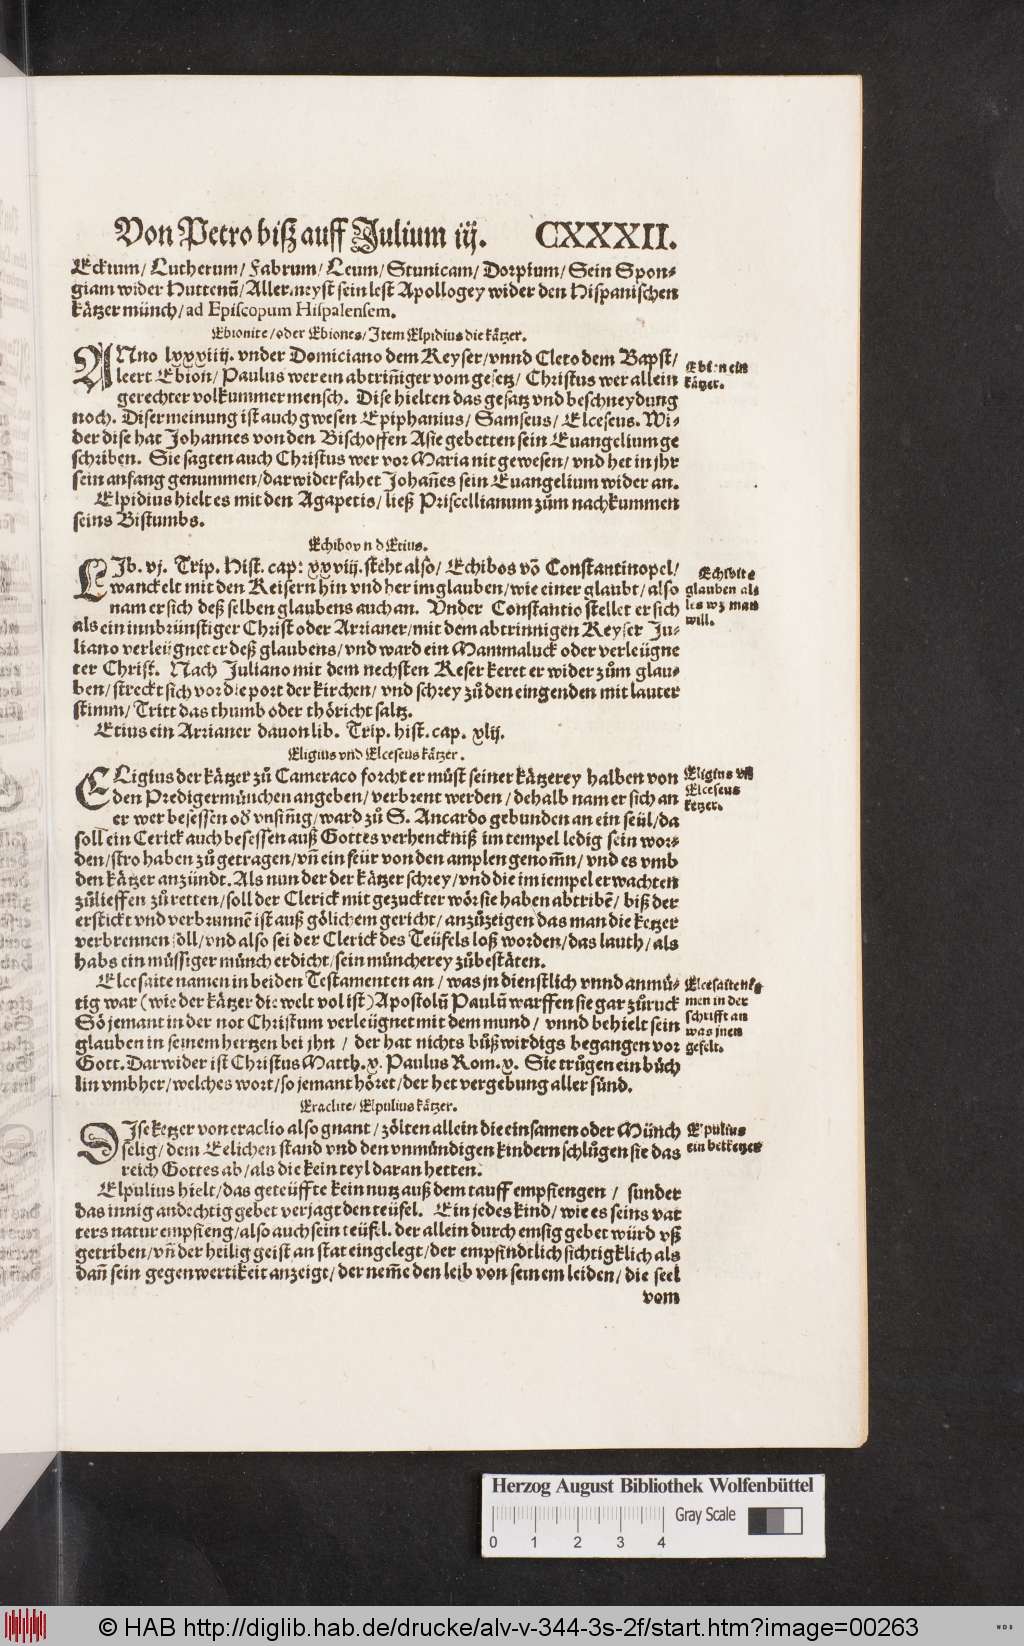 Von Petro biß auff Julium iij. CXXXII.
Eckium/ Lutherum/ Fabrum/ Leum/ Stunicam/ Dorpium/ Sein Spon-
giam wider Huttenū/ Aller meyst sein lest Apollogey wider den Hispanischen
kätzer münch/ ad Episcopum Hispalensem.
Ebionite/ oder Ebiones/ Item Elpidius die kätzer.
ANno lxxxiiij. vnder Domiciano dem Keyser/ vnnd Cleto dem Bapst/
leert Ebion/ Paulus wer ein abtriñiger vom gesetz/ Christus wer allein
gerechter volkummer mensch. Dise hielten das gesatz vnd beschneydung
noch. Diser meinung ist auch gwesen Epiphanius/ Samseus/ Elceseus. Wi-
der dise hat Johannes von den Bischoffen Asie gebetten sein Euangelium ge
schriben. Sie sagten auch Christus wer vor Maria nit gewesen/ vnd het in jhr
sein anfang genummen/ darwider fahet Johañes sein Euangelium wider an.
Elpidius hielt es mit den Agapetis/ ließ Priscellianum zům nachkummen
seins Bistumbs.
Ebion ein
kätzer.
Echibo vnd Etius.
LIb. vj. Trip. Hist. cap: xxviij. steht also/ Echibos vō Constantinopel/
wanckelt mit den Keisern hin vnd her im glauben/ wie einer glaubt/ also
nam er sich deß selben glaubens auch an. Vnder Constantio stellet er sich
als ein innbrünstiger Christ oder Arrianer/ mit dem abtrinnigen Keyser Ju-
liano verleügnet er deß glaubens/ vnd ward ein Mammaluck oder verleügne
ter Christ. Nach Juliano mit dem nechsten Keser keret er wider zům glau-
ben/ streckt sich vor die port der kirchen/ vnd schrey zů den eingenden mit lauter
stimm/ Tritt das thumb oder thöricht saltz.
Etius ein Arrianer dauon lib. Trip. hist. cap. xlij.
Echibite
glauben al-
les wz man
will.
Eligius vnd Elceseus kätzer.
ELigius der kätzer zů Cameraco forcht er můst seiner kätzerey halben von
den Predigermünchen angeben/ verbrent werden/ dehalb nam er sich an
er wer besessen od vnsiñig/ ward zů S. Ancardo gebunden an ein seül/ da
soll ein Cerick auch besessen auß Gottes verhenckniß im tempel ledig sein wor-
den/ stro haben zů getragen/ vñ ein feür von den amplen genom̄n/ vnd es vmb
den kätzer anzündt. Als nun der der kätzer schrey/ vnd die im tempel erwachten
zůlieffen zů retten/ soll der Clerick mit gezuckter wör sie haben abtribē/ biß der
erstickt vnd verbrunnē ist auß gölichem gericht/ anzůzeigen das man die ketzer
verbrennen söll/ vnd also sei der Clerick des Teüfels loß worden/ das lauth/ als
habs ein müssiger münch erdicht/ sein müncherey zůbestäten.
Eligius vñ
Elceseus
ketzer.
Elcesaite namen in beiden Testamenten an/ was jn dienstlich vnnd anmů-
tig war (wie der kätzer die welt vol ist) Apostolū Paulū warffen sie gar zůruck
Sö jemant in der not Christum verleügnet mit dem mund/ vnnd behielt sein
glauben in seinem hertzen bei jhn/ der hat nichts bůßwirdigs begangen vor
Gott. Darwider ist Christus Matth. x. Paulus Rom. x. Sie trůgen ein büch
lin vmbher/ welches wort/ so jemant höret/ der het vergebung aller sünd.
Elcesaite na
men in der
schrifft an
was jnen
gefelt.
Eraclite/ Elpulius kätzer.
DIse ketzer von eraclio also gnant/ zölten allein die einsamen oder Münch
selig/ dem Eelichen stand vnd den vnmündigen kindern schlůgen sie das
reich Gottes ab/ als die kein teyl daran hetten.
Elpulius
ein bettketzer
Elpulius hielt/ das geteüffte kein nutz auß dem tauff empfiengen/ sunder
das innig andechtig gebet verjagt den teüfel. Ein jedes kind/ wie es seins vat
ters natur empfieng/ also auch sein teüfel. der allein durch emsig gebet würd vß
getriben/ vñ der heilig geist an stat eingelegt/ der empfindtlich sichtigklich als
dañ sein gegenwertikeit anzeigt/ der nem̄e den leib von seinem leiden/ die seel
vom
Herzog August Bibliothek Wolfenbüttel
Gray Scale
0 1 2 3 4
© HAB http://diglib.hab.de/drucke/alv-v-344-3s-2f/start.htm?image=00263